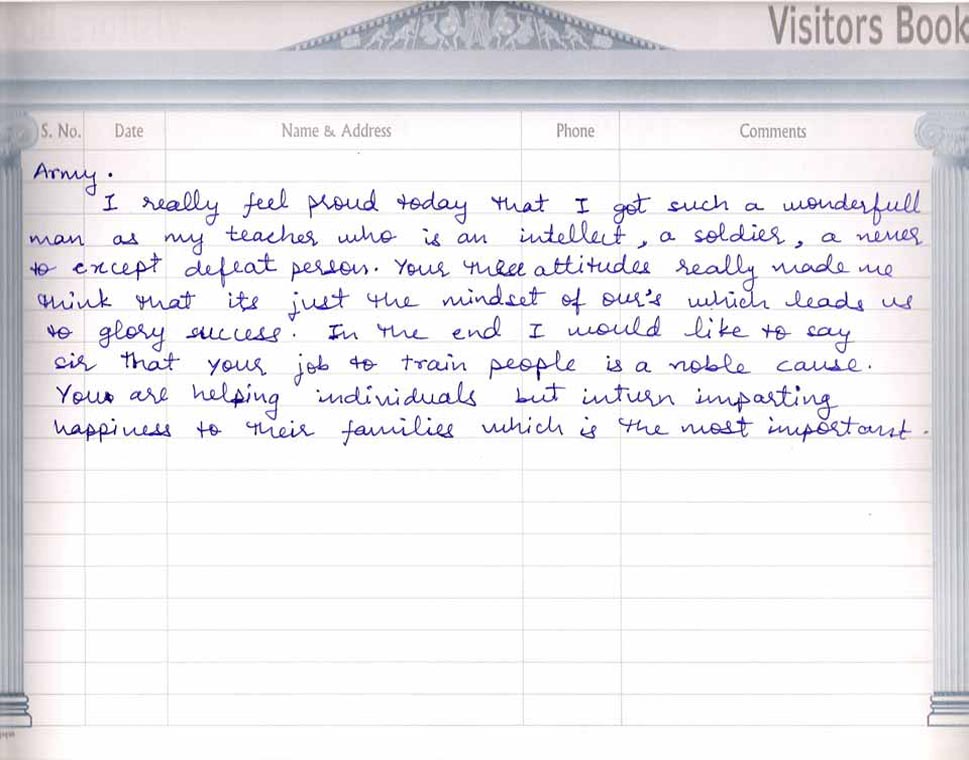 Visitors Book
S. No. Date Name & Address Phone Comments
Army.
I really feel proud today that I got such a wonderfull
man as my teacher who is an intellect, a soldier, a never
to except defeat person. Your three attitudes really made me
think that its just the mindset of our's which leads us
to glory success. In the end I would like to say
sir that your job to train people is a noble cause.
You are helping individuals but inturn imparting
happiness to their families which is the most important.